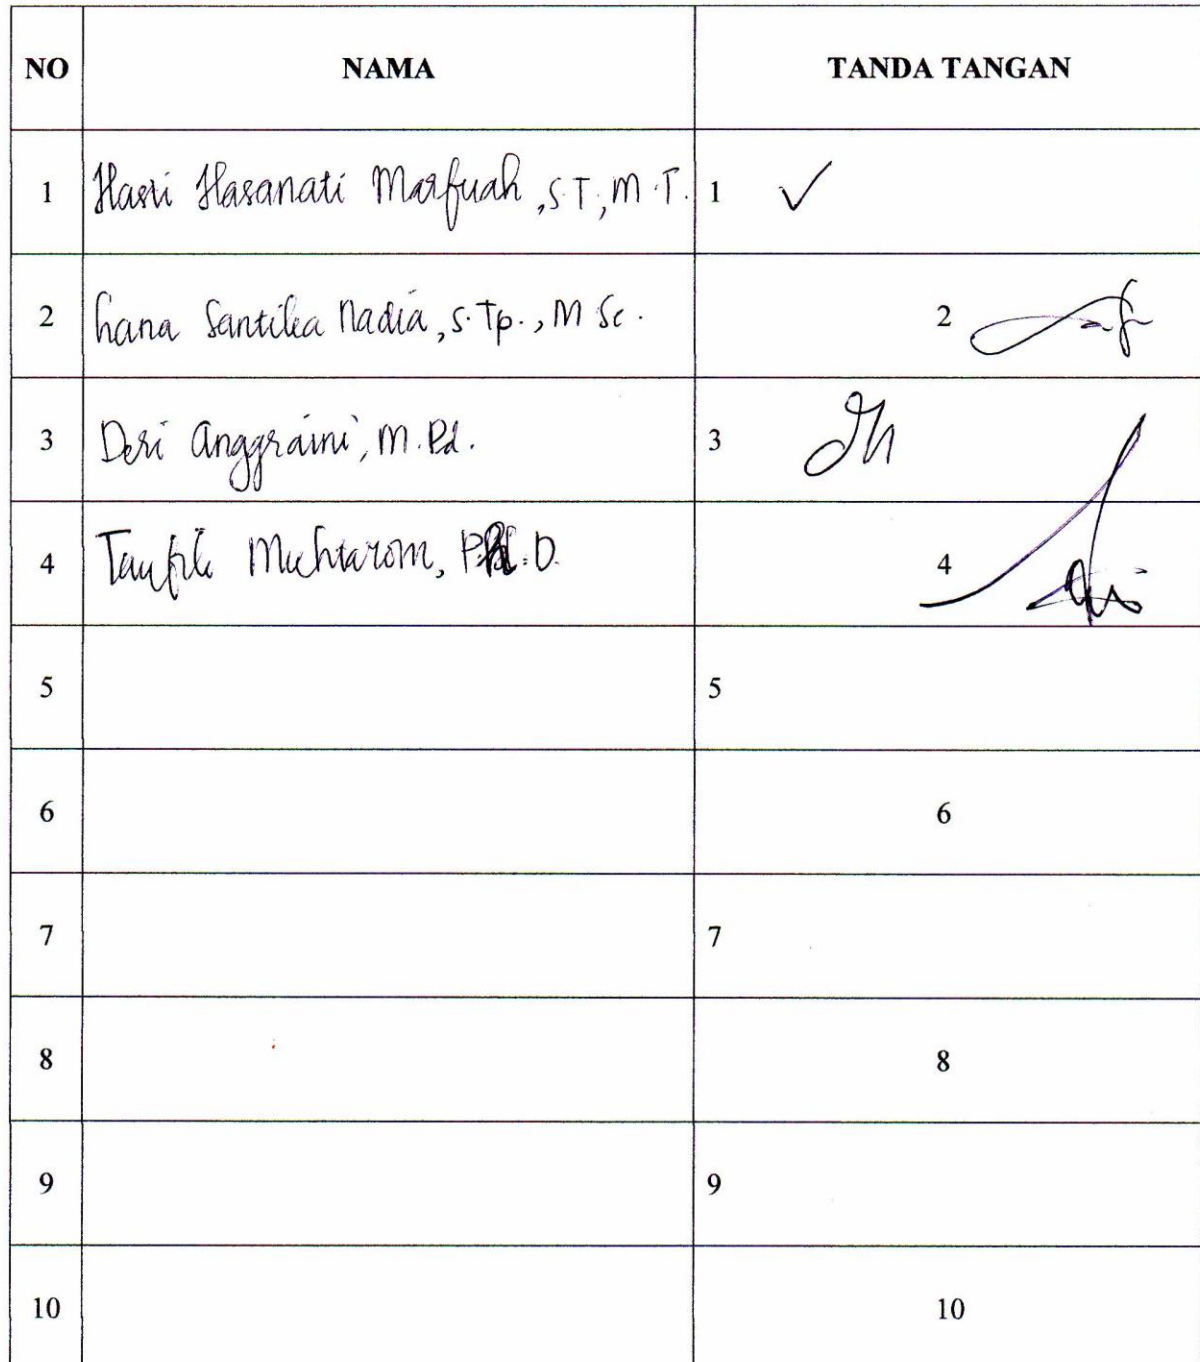 NO NAMA TANDA TANGAN
1 Hasri Hasanati Marfuah, S.T, M.T. 1 ✓
2 hana Santika Nadia, S.Tp., M Sc. 2
3 Deri Anggraini, M.Pd. 3
4 Taufik Muhtarom, Ph.D. 4
5 5
6 6
7 7
8 8
9 9
10 10